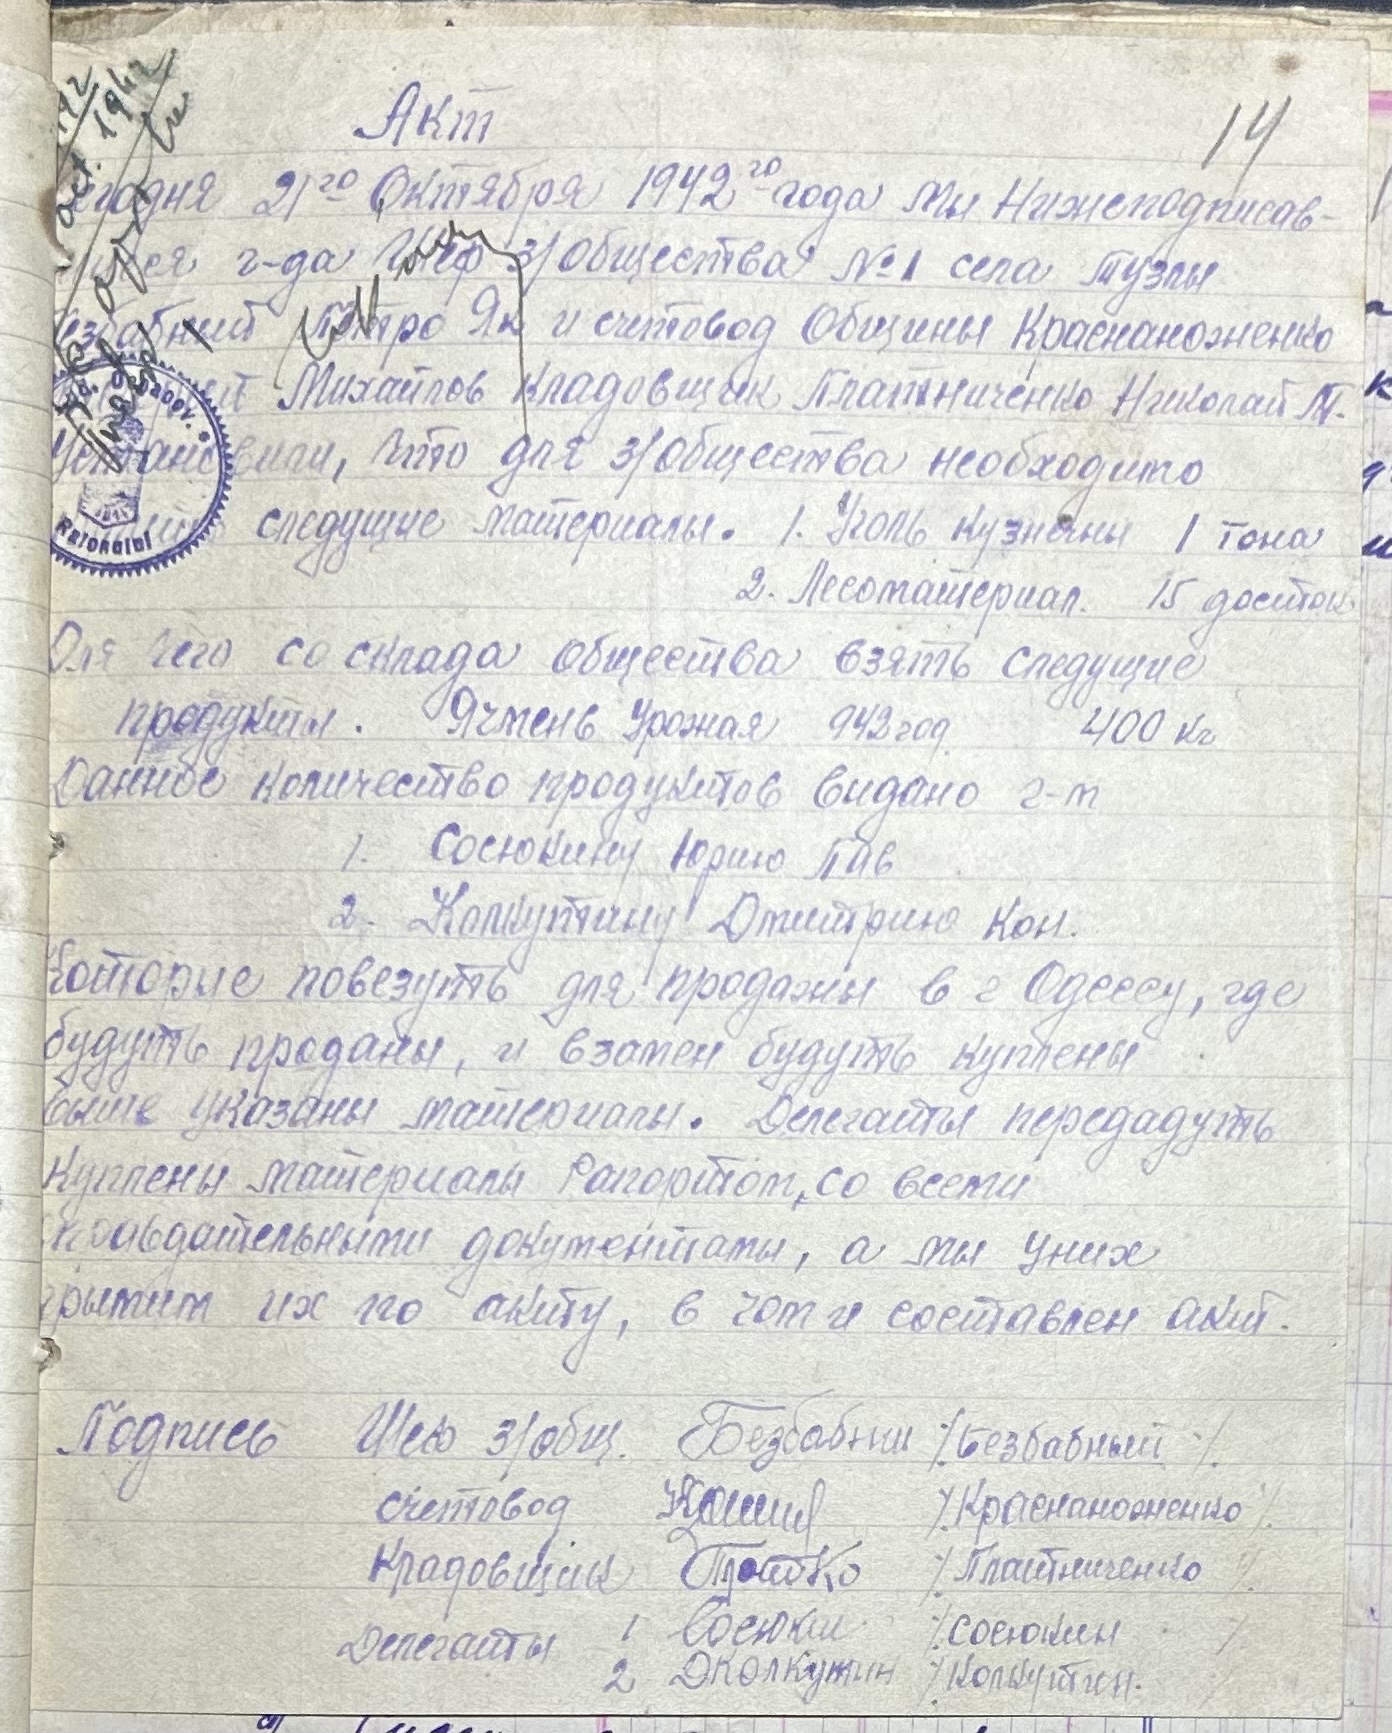 Акт
14
21го Октября 1942го года Мы Нижеподписав-
г-да Шеф з/общества №1 села Тузлы
Петро Як и счетовод Общины Краснаноженко
Михайлов Кладовщик Платниченко Николай М.
Установили, что для з/общества необходимо
следущие материалы. 1. Уголь кузнечны 1 тона
2. Лесоматериал. 15 досток
Для чего со склада общества взять следущие
продукты. Ячмень Урожая 942 год 400 кг
Данное количество продуктов видано г-м
1. Сосюкину Юрию Пав
2. Колкутину Дмитрию Кон.
Которые повезуть для продажи в г Одессу, где
будуть проданы, и взамен будуть куплены
выше указаны материалы. Делегаты передадуть
куплены материалы Рапортом, со всеми
документамы, а мы Уних
их по акту, в чом и составлен акт.
Подпись Шеф з/общ. Безбабный /Безбабный/.
Счетовод /Краснаноженко/.
Кладовщик /Платниченко/
Делегаты 1 Сосюкин /Сосюкин/
2 ДКолкутин /Колкутин.
Raionalol